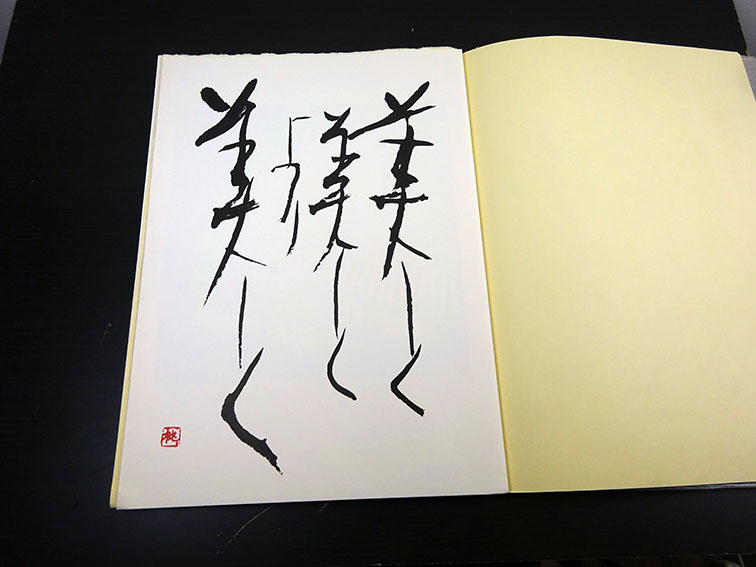 美しく
美しく
より
美しく
桃